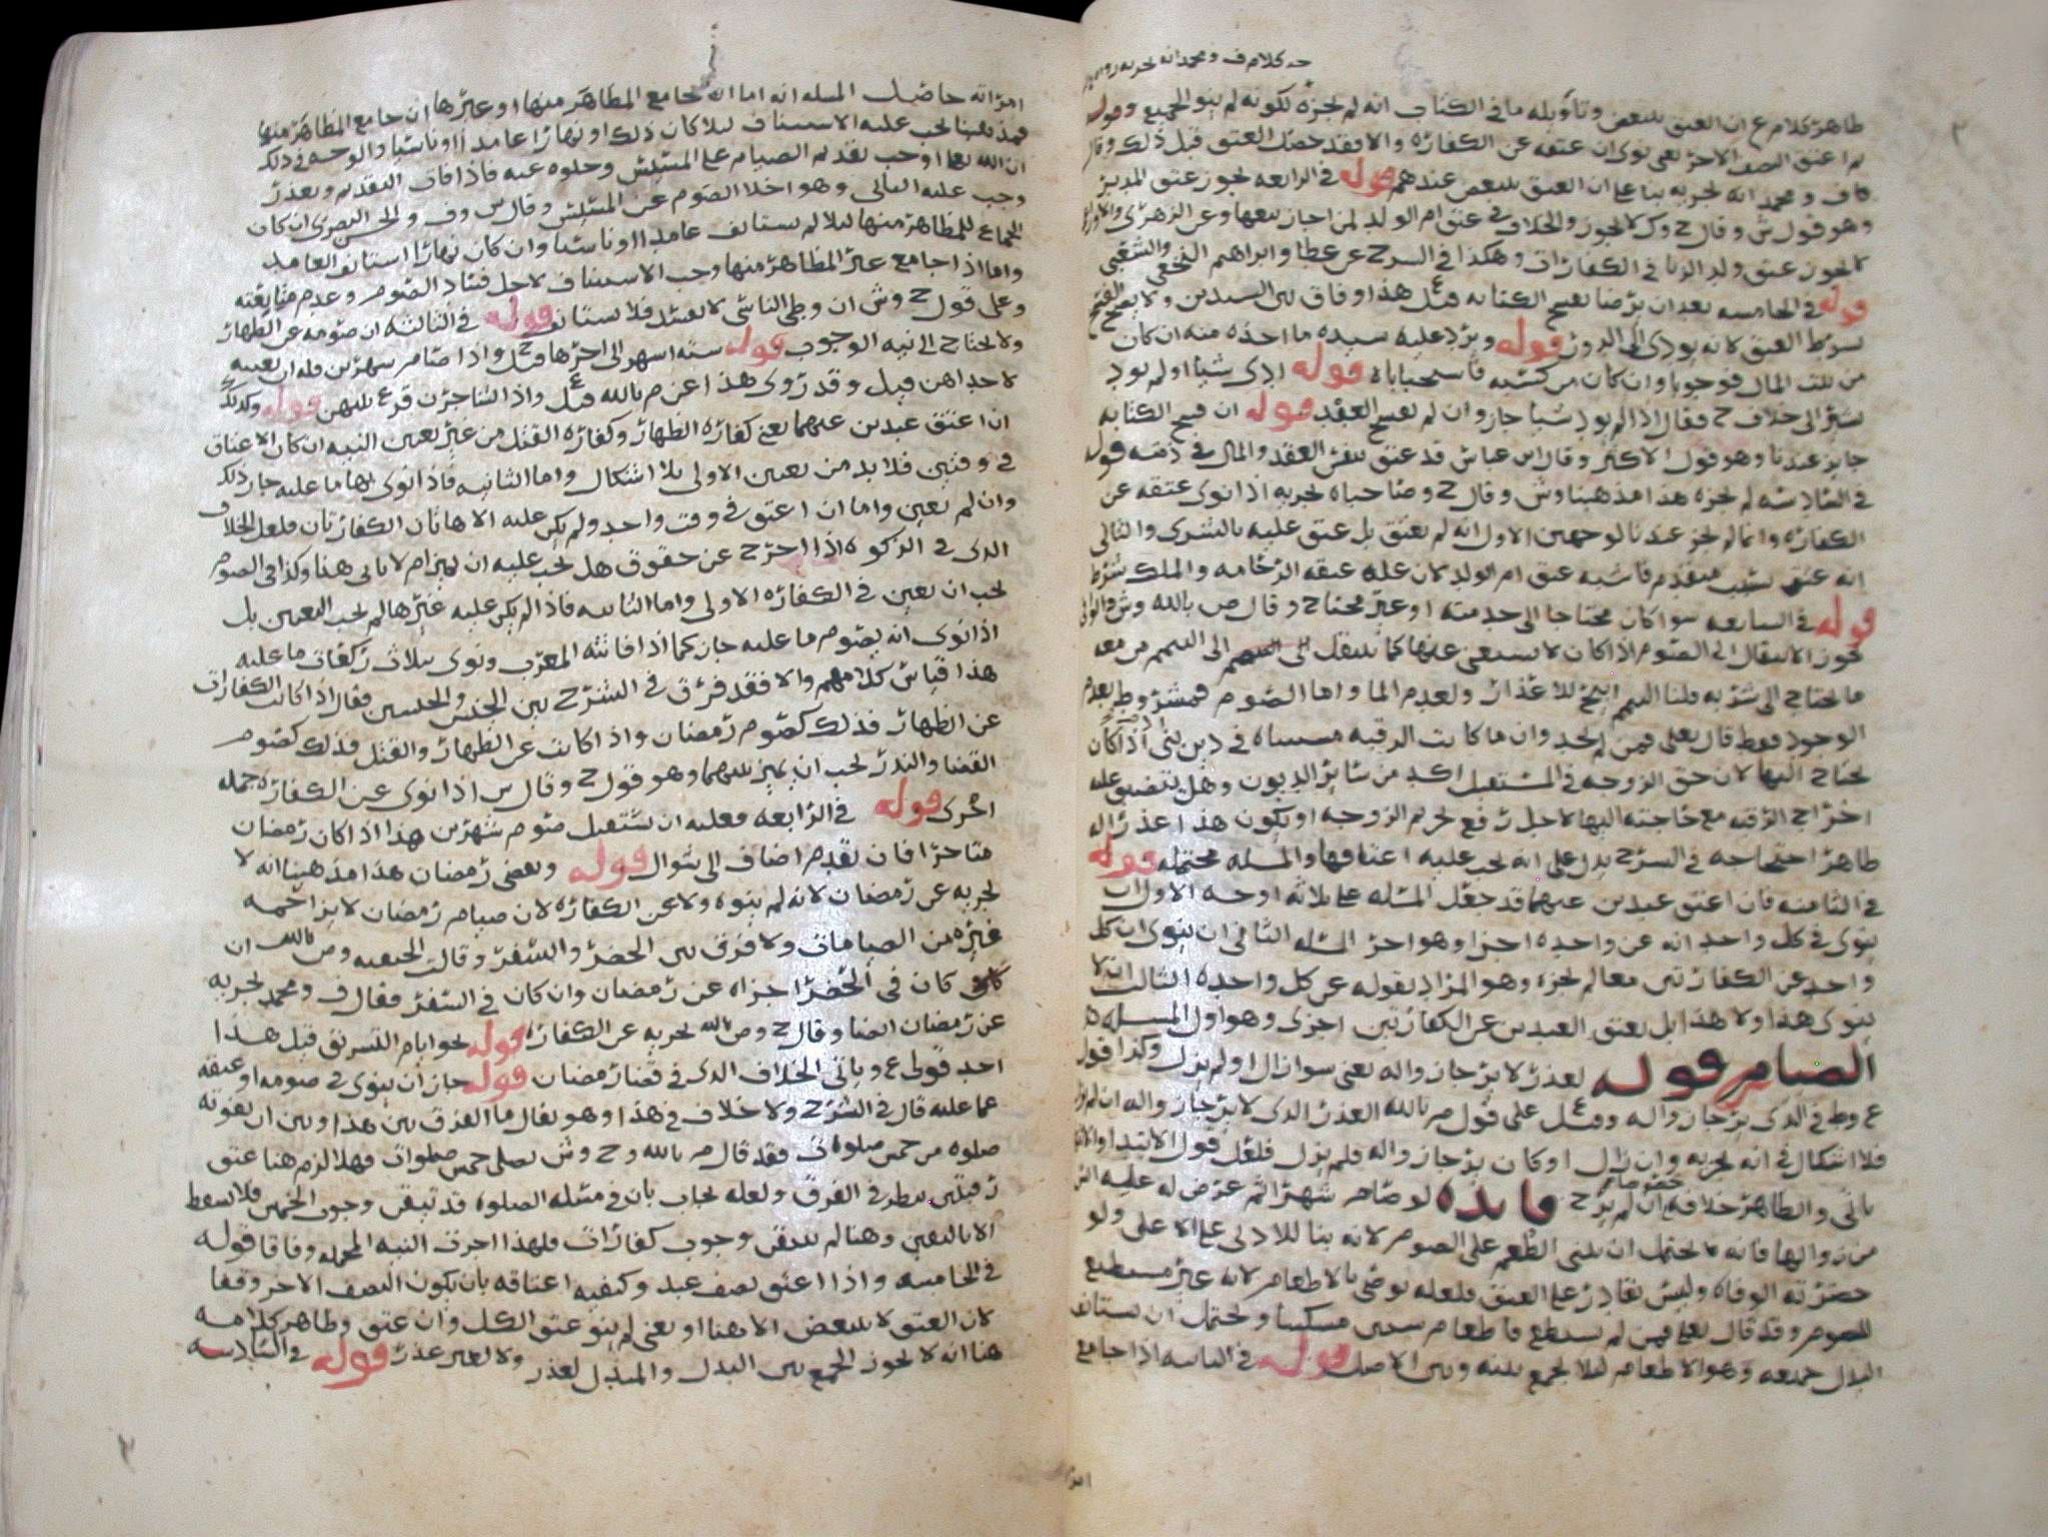 حه كلام ف ومحمد انه لحربه
طاهر كلام ع ان العتق يتبعض وتاويله ما في الكتاب انه لم يجزه لكونه لم ينو الجميع وقوله
ثم اعتق النصف الاخر يعني نوى ان عتقه عن الكفاره والا فقد حصل العتق قبل ذلك وقال
ف ومحمد انه يجزيه بنا على ان العتق يتبعض عندهم قوله في الرابعه يجوز عتق المدبر
وهو قول ش وقال ح وك لا يجوز والخلاف في عتق ام الولد لمن اجاز بيعها وعن الزهري
لا يجوز عتق ولد الزنا في الكفارات وهكذا في الشرح عن عطا وابراهيم النخعي والشعبي
قوله في الخامسه بعد ان يرضا بفسخ الكتابه قيل هذا وفاق بين السيدين ولا يصح الفسخ
بشرط العتق لانه يودي الى الدور قوله ويرد عليه سيده ما اخذه منه ان كان
من بيت المال فوجوبا وان كان من كسبه فاستحبابا قوله ادى شيا او لم يود
يشير الى خلاف ح فقال اذا لم يود شيا جاز وان لم يفسخ العقد قوله ان فسخ الكتابه
جايز عندنا وهو قول الاكثر وقال ابن عباس قد عتق بنفس العقد والمال في ذمته قوله
في السادسه لم يجزه هذا مذهبنا وش وقال ح وصاحباه يجزيه اذا نوى عتقه عن
الكفاره وانما لم يجز عندنا لوجهين الاول انه لم يعتق بل عتق عليه بالشرى والثاني
انه عتق بسبب متقدم فاشبه عتق ام الولد لان علة عتقه الرحامه والملك شرط
قوله في السابعه سوا كان محتاجا الى خدمته او غير محتاج وقال ص بالله وش
يجوز الانتقال الى الصوم اذا كان لا يستغني عنها كما ينتقل الى التيمم من معه
ما يحتاج الى شربه قلنا التيمم ابيح للاعذار ولعدم الما واما الصوم فمشروط بعدم
الوجود فقط قال تعالى فمن لم يجد وان ما كانت الرقبه في دين
يحتاج اليها لان حق الزوجه في المستقبل اكد من ساير الديون وهل يتضيق عليه
اخراج الرقبه مع حاجته اليها لاجل رفع تحريم الزوجه او يكون هذا عذر اله
طاهر احتجاجه في الشرح يدل على انه يجب عليه اعتاقها والمسله محتمله قوله
في الثامنه فان اعتق عبدين عنهما قد جعل المسله على ثلاثه اوجه الاول ان
ينوى في كل واحد انه عن واحده اجزا وهو اخر المسله الثاني ان ينوى ان كل
واحد عن الكفارتين معا لم يجزه وهو المراد بقوله عن كل واحده الثالث ان لا
ينوى هذا ولا هذا بل يعتق العبدين عن الكفارتين اجزى وهو اول المسله
الصيام قوله لعذر لا يرجا زواله يعني سوا زال او لم يزل وكذا قول
ع وط في الذي يرجا زواله وقيل ع على قول ص بالله العذر الذي لا يرجا زواله ان لم
فلا اشكال في انه يجزيه وان زال او كان يرجا زواله فلم يزل فلعل قول الابتدا
ياتي والطاهر خلافه ان لم يرج فايده لو صام شهرا ثم عرض له عليه
من زوالها فانه لا يحتمل ان يبنى الطعم على الصوم لانه بنا للادنى على الاعلى ولو
حضرته الوفاه وليس بقادر على العتق فلعله يوصي بالاطعام لانه غير مستطيع
للصوم وقد قال تعالى فمن لم يستطع فاطعام ستين مسكينا ويحتمل ان يستانف
البدل جميعه وهو الاطعام ليلا يجمع بينه وبين الاصل قوله في الثانيه اذا جامع
امراته حاصل المسله انه اما ان يجامع المظاهر منها او غيرها ان جامع المظاهر منها
فمذهبنا يجب عليه الاستيناف ليلا كان ذلك او نهارا عامدا او ناسيا والوجه في ذلك
ان الله تعالى اوجب تقديم الصيام على المسيس وخلوه عنه فاذا فات التقديم وتعذر
وجب عليه التالي وهو اخلا الصوم عن المسيس وقال س وف والحسن البصرى ان كان
الجماع للمظاهر منها ليلا لم يستانف عامدا او ناسيا وان كان نهارا استانف العامد
واما اذا جامع غير المظاهر منها وجب الاستيناف لاجل فساد الصوم وعدم متابعته
وعلى قول ح وش ان وطي الناسي لا يفسد فلا يستانف قوله في الثالثه ان صومه عن الظهار
ولا يحتاج الى نيه الوجوب قوله سته اشهر الى اخرها قيل ح واذا صام شهرين فله ان يعينه
لاحداهن قبل وقد روى هذا عن ص بالله قيل ع واذا تشاجرن قرع بينهن قوله وكذلك
ان اعتق عبدين عنهما يعني كفاره الظهار وكفاره القتل من غير تعيين النيه ان كان الاعتاق
في وقتين فلا بد من تعيين الاولى بلا اشكال واما الثانيه فاذا نوى بها ما عليه جاز ذلك
وان لم يعين واما ان اعتق في وقت واحد ولم يكن عليه الا هاتان الكفارتان فلعل الخلاف
الذى في الزكوه اذا اخرج عن حقوق هل يجب عليه ان يميز ام لا ياتي هنا وكذا في الصوم
يجب ان يعين في الكفاره الاولى واما الثانيه فاذا لم يكن عليه غيرها لم يجب التعيين بل
اذا نوى انه يصوم ما عليه جاز كما اذا فاتته المغرب ونوى بثلاث ركعات ما عليه
هذا قياس كلامهم والا فقد فرق في الشرح بين الجنس والجنسين فقال اذا كانت الكفارات
عن الظهار فذلك كصوم رمضان واذا كانت عن الظهار والقتل فذلك كصوم
القضا والنذر يجب ان يميز بينهما وهو قول ح وقال س اذا نوى عن الكفاره جمله
اجزى قوله في الرابعه فعليه ان يستقبل صوم شهرين هذا اذا كان رمضان
متاخرا فان تقدم اضاف الى شوال قوله وبعض رمضان هذا مذهبنا انه لا
يجزيه عن رمضان لانه لم ينوه ولا عن الكفاره لان صيام رمضان لا يزاحمه
غيره من الصيامات ولا فرق بين الحضر والسفر وقالت الحنفيه وص بالله ان
كان في الحضر اجزاه عن رمضان وان كان في السفر فقال ف ومحمد يجزيه
عن رمضان ايضا وقال ح وص بالله يجزيه عن الكفاره قوله نحو ايام التشريق قيل هذا
احد قولى ع وياتي الخلاف الذى في قضا رمضان قوله جاز ان ينوى في صومه او عتقه
عما عليه قال في الشرح ولا خلاف في هذا وهو يقال ما الفرق بين هذا وبين ان يفوته
صلوه من خمس صلوات فقد قال ص بالله وح وش يصلي خمس صلوات فهلا لزم هنا عتق
رقبتين ينظر في الفرق ولعله يجاب بان في مسله الصلوه قد تيقن وجوب الخمس فلا يسقط
الا باليقين وهنا لم يتيقن وجوب كفارات فلهذا اجزت النيه المجمله وفاقا قوله
في الخامسه واذا اعتق نصف عبد وكيفيه اعتاقه بان يكون النصف الاخر وقفا
لان العتق لا يتبعض الا هنا او يعني لم ينو عتق الكل وان عتق وظاهر كلامه
هنا انه لا يجوز الجمع بين البدل والمبدل لعذر ولا لغير عذر قوله في السادسه